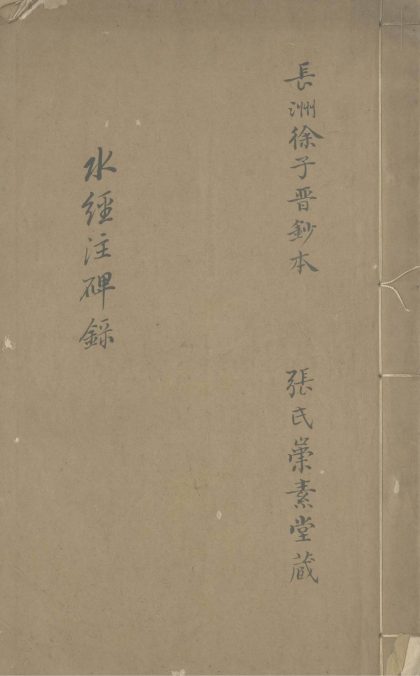 長洲徐子晋鈔本 張氏䕫素堂蔵
水經注碑録